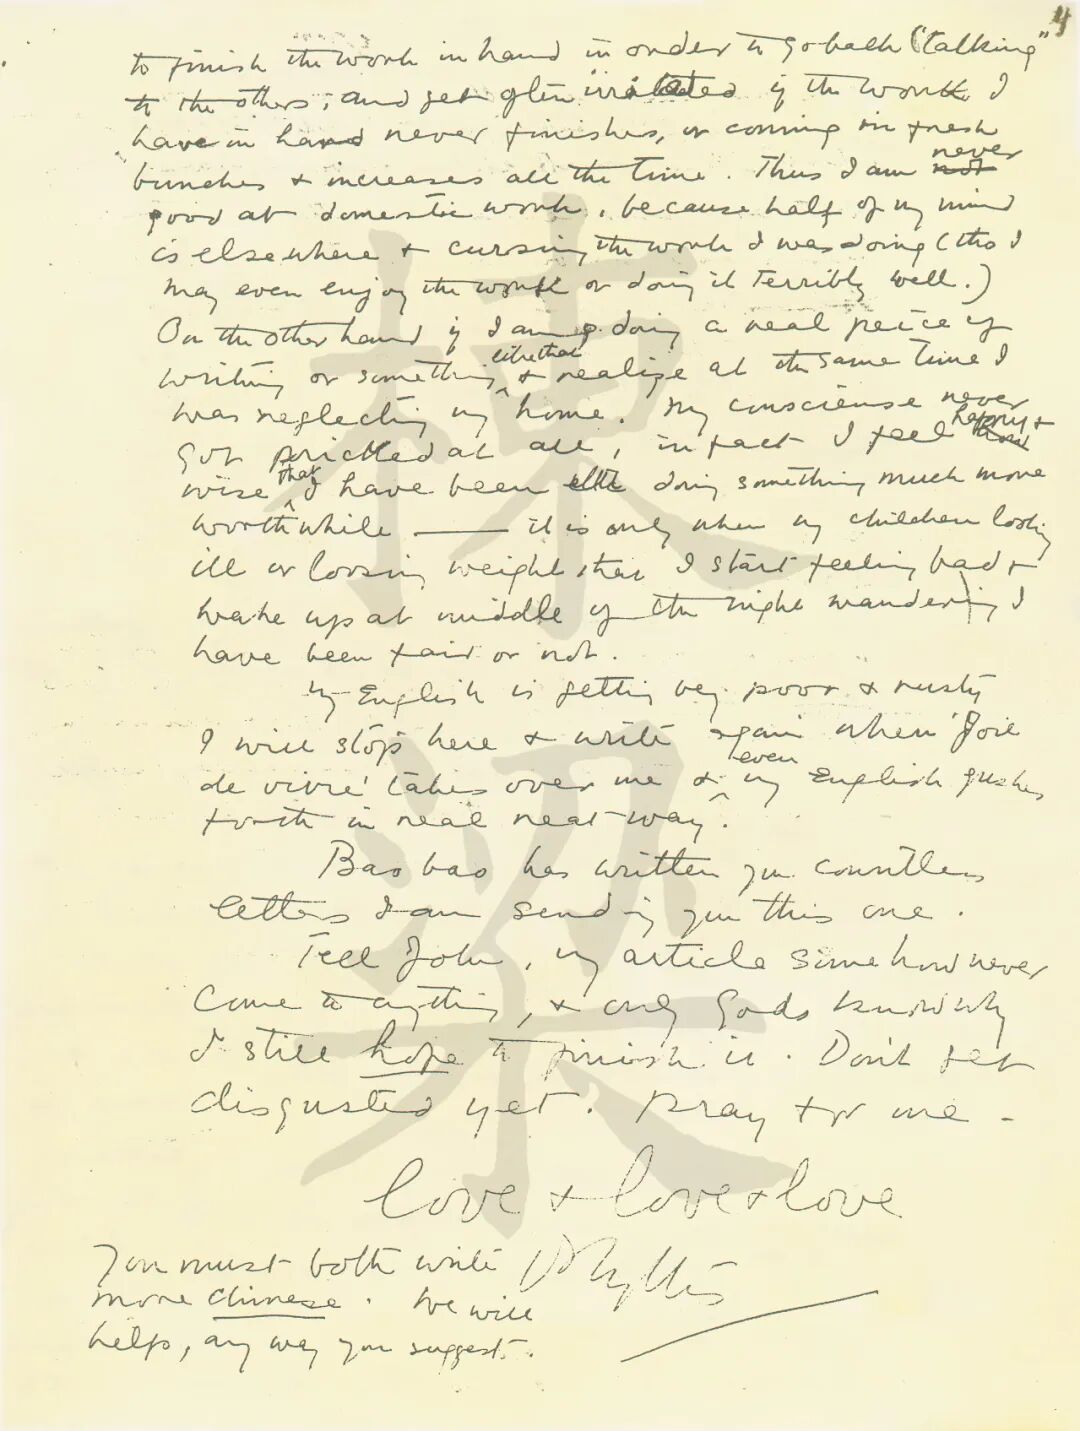 4
to finish the work in hand in order to go back ("talking"
to the others, and get often irritated if the work I
have in hand never finishes, or coming in fresh
bunches & increases all the time. Thus I am not never
good at domestic work, because half of my mind
is elsewhere & cursing the work I was doing (tho I
may even enjoy the work or doing it terribly well.)
On the other hand if I am doing a real peice of
writing or something like that & realize at the same time I
was neglecting my home. My consciense never
got pricked at all, in fact I feel happy &
wise that I have been doing something much more
worthwhile — it is only when my children looking
ill or loosing weight then I start feeling bad &
wake up at middle of the night wandering I
have been fair or not.
My English is getting very poor & rusty
I will stop here & write again when 'Joie
de vivre' takes over me & even my English gushes
forth in real neat way.
Baobao has written you countless
letters I am sending you this one.
Tell John, my article somehow never
came to anything, & only Gods know why
I still hope to finish it. Don't get
disgusted yet. Pray for me -
love & love & love
Phyllis
You must both write
more Chinese. We will
help, any way you suggest.
梁